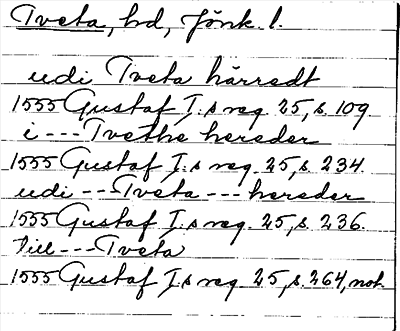 Tveta, hd, Jönk. l.
udi Tveta härredt
1555 Gustaf I.s reg. 25, s. 109.
i --- Tvethe hereder
1555 Gustaf I.s reg. 25, s. 234.
udi --- Tveta --- hereder
1555 Gustaf I.s reg. 25, s. 236.
Till --- Tveta
1555 Gustaf I.s reg. 25, s. 264, not.